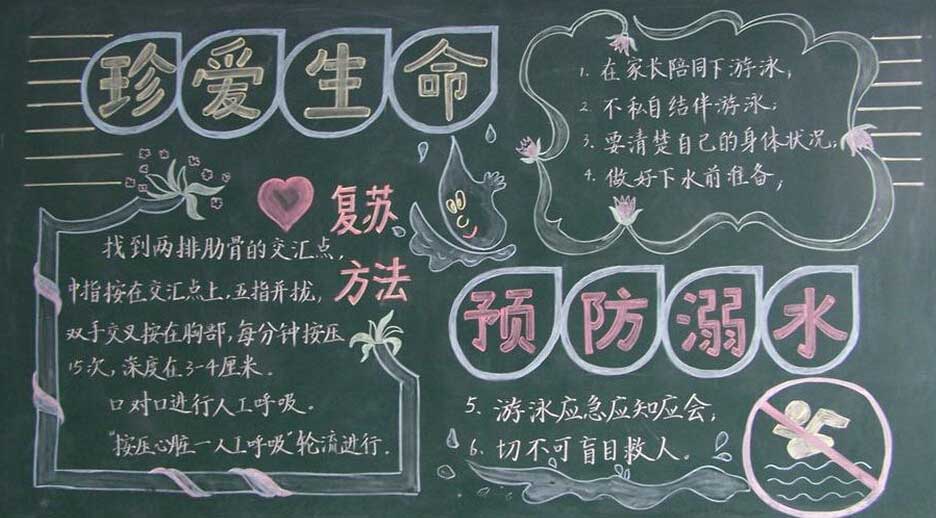 珍爱生命
1. 在家长陪同下游泳;
2. 不私自结伴游泳;
3. 要清楚自己的身体状况;
4. 做好下水前准备;
复苏
方法
找到两排肋骨的交汇点,
中指按在交汇点上,五指并拢,
双手交叉按在胸部,每分钟按压
15次,深度在3-4厘米。
口对口进行人工呼吸。
“按压心脏—人工呼吸”轮流进行.
预防溺水
5. 游泳应急应知应会;
6. 切不可盲目救人。